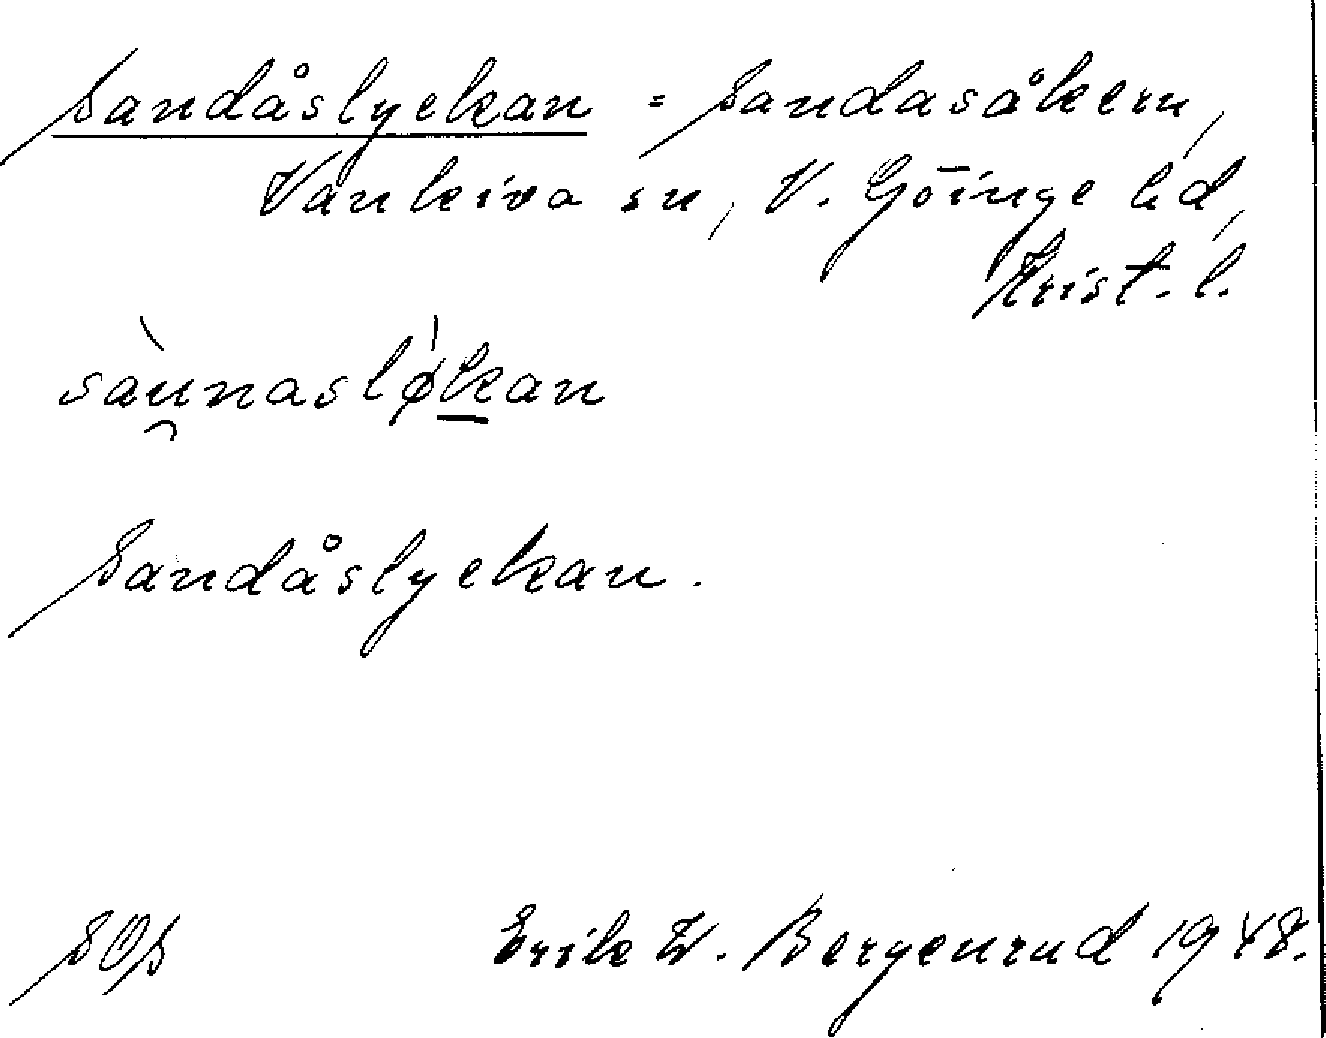 Sandåslyckan = Sandasåkern,
Vankiva sn, V. Göinge hd,
Krist. l.
sàu̯nasløkan
Sandåslyckan.
SOs
Erik W. Bergenrud 1948.